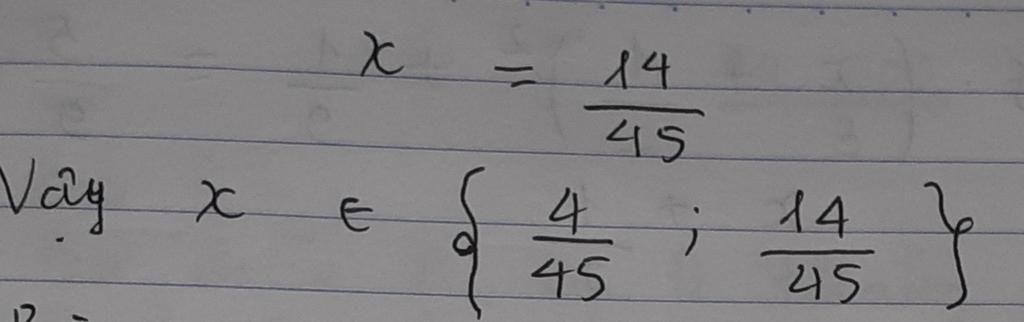 x = 14/45
Vậy x ∈ { 4/45 ; 14/45 }